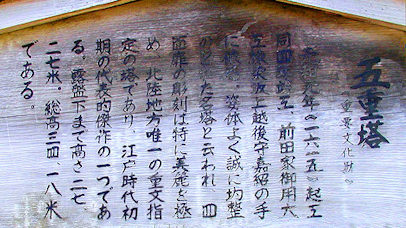 五重塔
(重要文化財)
元年(一六一五)起工
同四年竣工、前田家御用大
工 上越後守嘉紹の手
に依る 姿体よく誠に均整
がとれた名塔と云われ 四
面扉の彫刻は特に美麗を極
め 北陸地方唯一の重文指
定の塔であり、江戸時代初
期の代表的傑作の一つであ
る。露盤下まで高さ二七
二七米。総高三四、一八米
である。